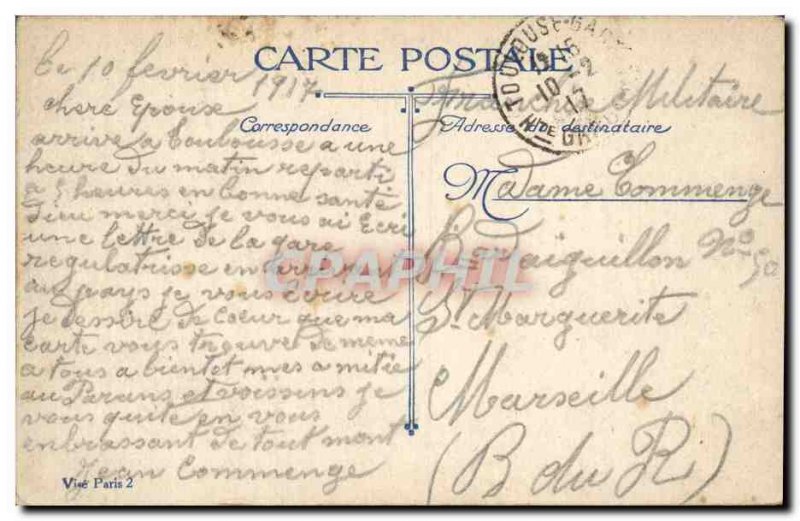 CARTE POSTALE
Correspondance
Le 10 fevrier 1917
chere Epouse
arrive a Toulousse a une
heure du matin reparti
a 5 heures en bonne santé
Dieu merci je vous ai Ecri
une lettre de la gare
regulatrisse en arrivant
au pays je vous ecrire
je dessire de coeur que ma
carte vous trouvet de meme
a tous a bientet mes amitie
au Parans et voissins je
vous quite en vous
enbrassant de tout mont
Jean Commenge
Visé Paris 2
TOULOUSE-GARE
10 -2
17
HTE GARONNE
Franchise Militaire
Adresse du destinataire
Madame Commenge
Bd aiguillon No 50
St Marguerite
Marseille
(B du R)
CPAPHIL